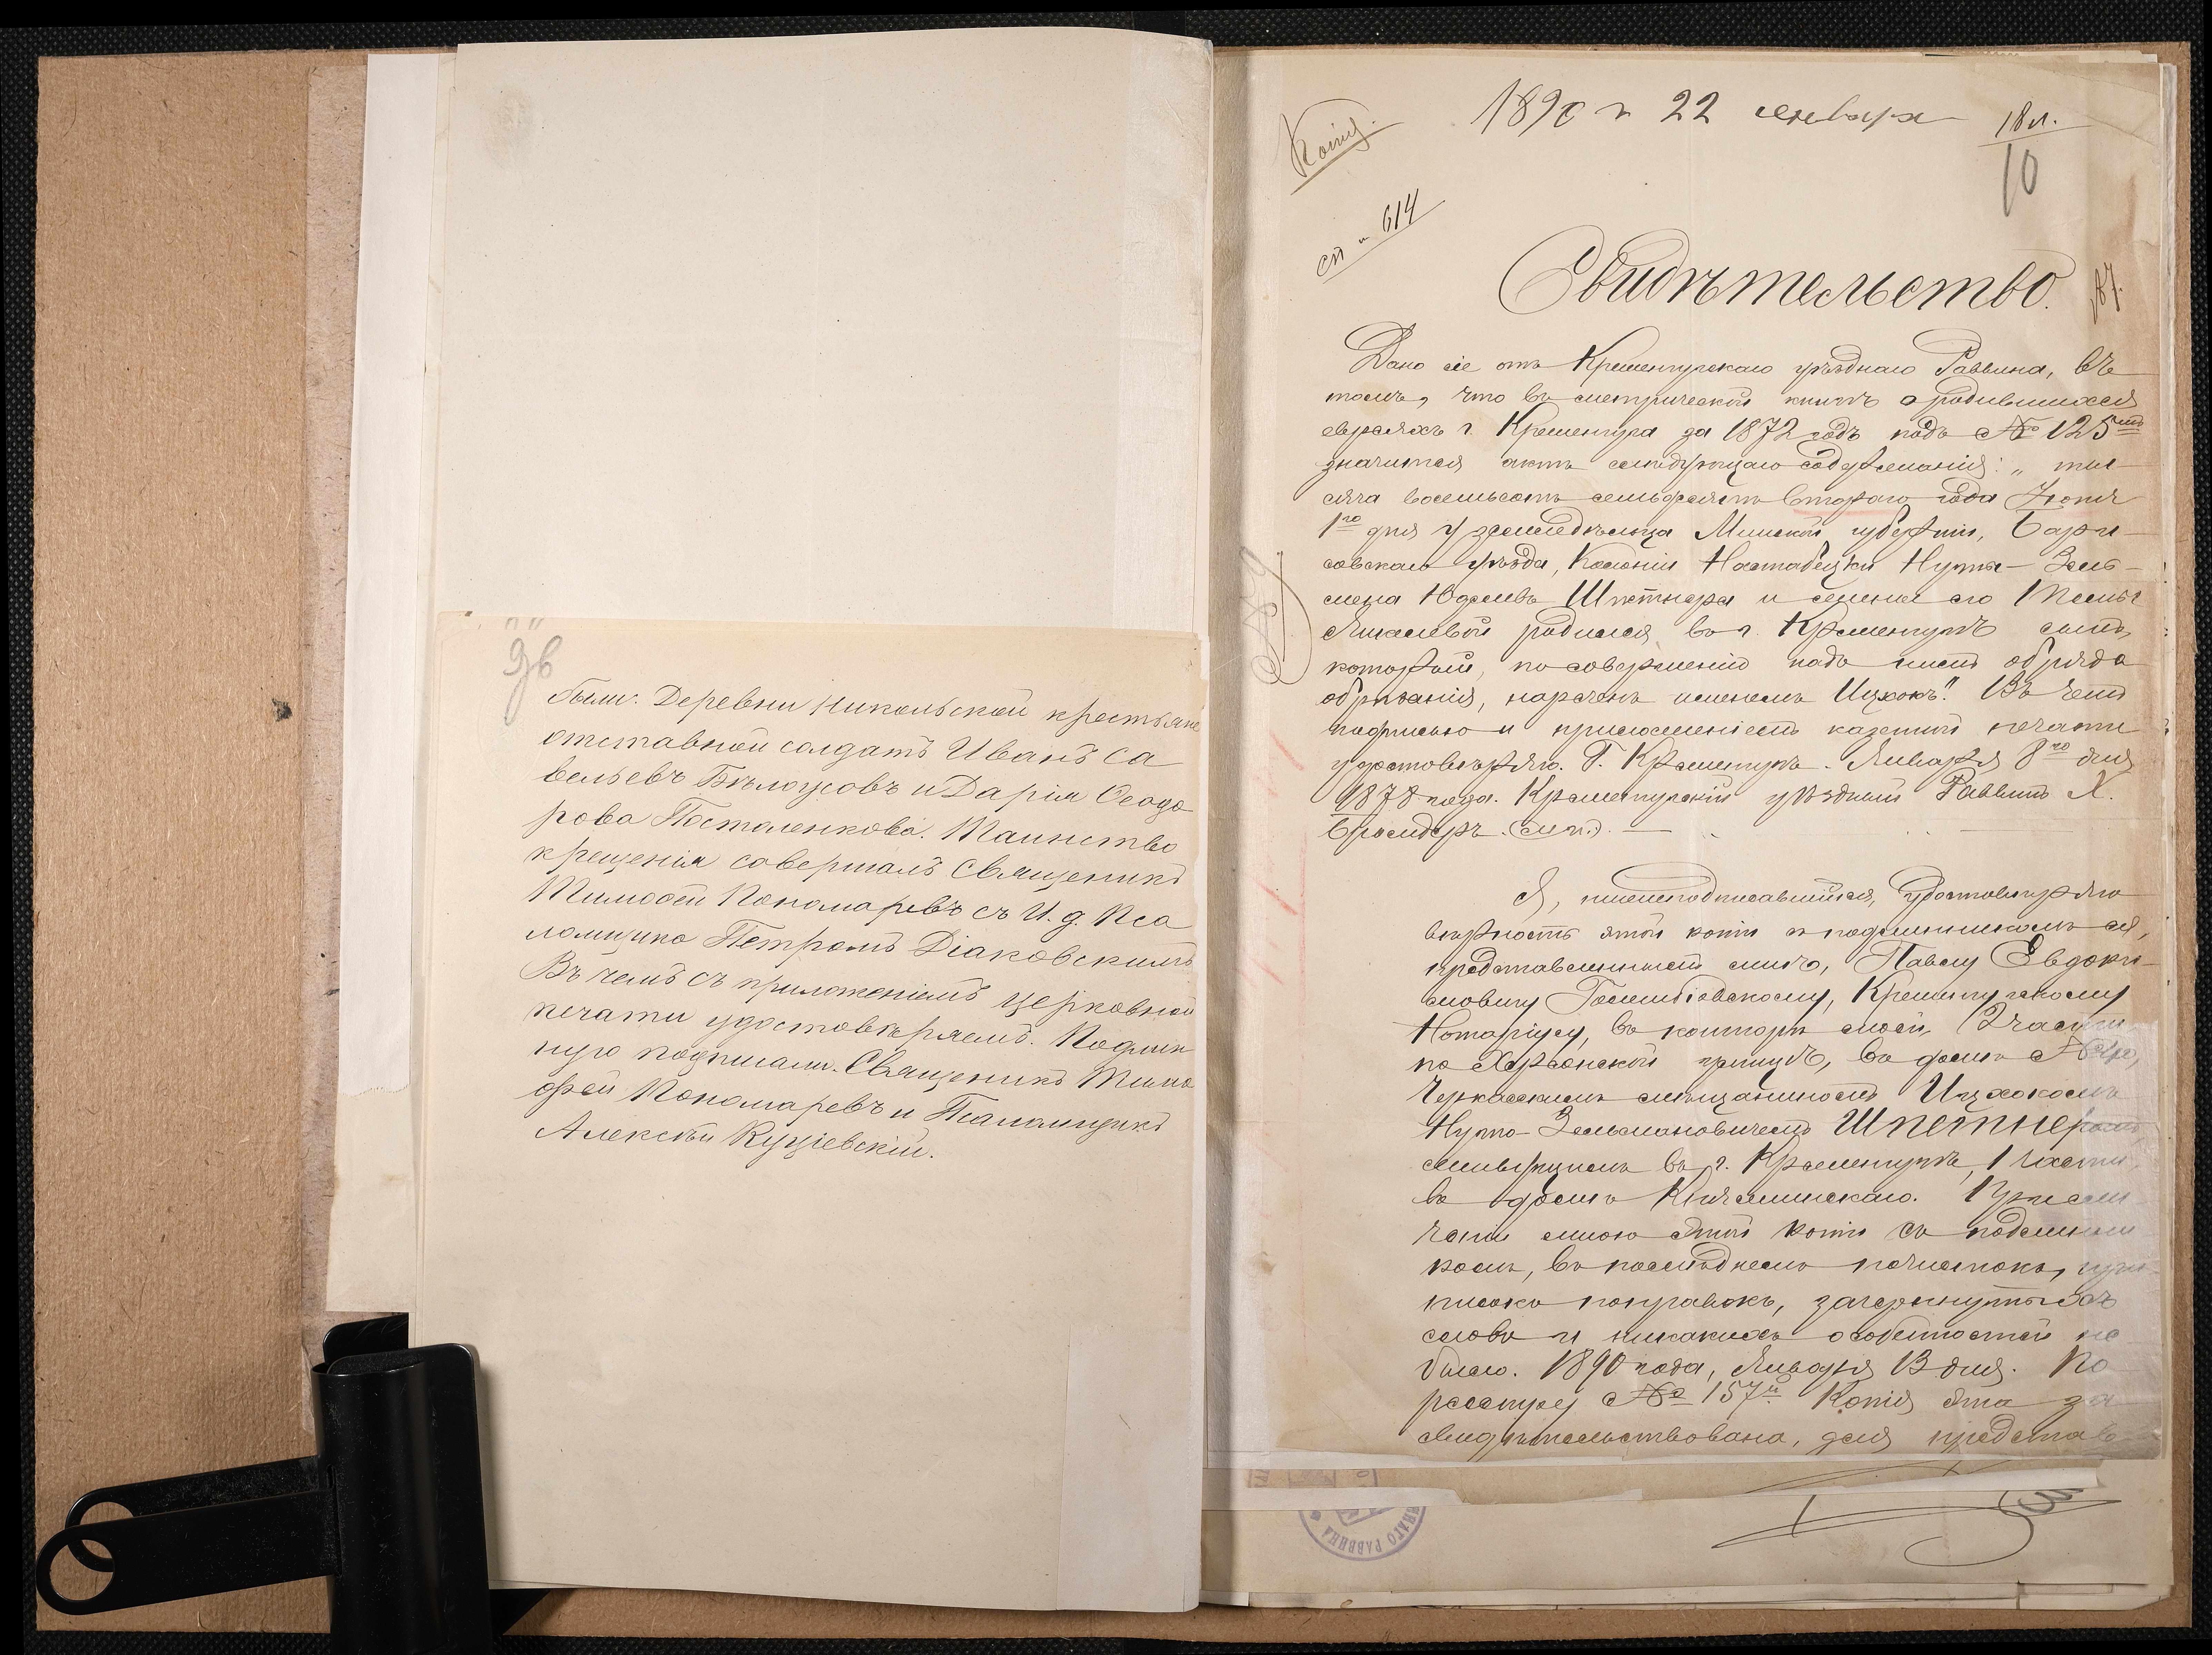 были: Деревни Никольской крестьяне
отставной солдатъ Иванъ Са
вельевъ Бѣлоусовъ и Дарія Ѳеодо
рова Посталенкова. Таинство
крещенія совершалъ Священникъ
Тимоѳей Пономаревъ съ И. д. Пса
ломщика Петромъ Діаковскимъ
Въ чемъ съ приложеніемъ церковной
печати удостовѣряемъ. Подлин
ную подписали. Священникъ Тимо
фей Пономаревъ и Псаломщикъ
Алексѣй Куціевскій.
Копія.
1890 г 22 января
18 л.
10
614
Свидѣтельство.
Дано сіе отъ Кременчугскаго уѣзднаго Раввина, въ
томъ, что въ метрической книгѣ о родившихся
евреяхъ г. Кременчуга за 1872 годъ подъ № 125
значится актъ слѣдующаго содержанія: „ты-
сяча восемьсотъ семьдесятъ втораго года Іюня
1го дня у земледѣльца Минской губерніи, Бори-
совскаго уѣзда, Колоніи Нуты-Зель-
мена Юделева и жены его
родился въ г. Кременчугѣ сынъ,
который, по совершеніи надъ нимъ обряда
обрѣзанія, нареченъ именемъ Ицхокъ". Въ чемъ
подписью и приложеніемъ казенной печати
удостовѣряю. Г. Кременчугъ. Января 8го дня
1878 года. Кременчугскій уѣздный Раввинъ Х.
(м.п.)
Я, нижеподписавшійся, удостовѣряю
вѣрность этой копіи съ подлинникомъ ея,
представленнымъ мнѣ, Павлу Евдоки-
мовичу Кременчугскому
Нотаріусу, въ конторѣ моей, 2 части
по Херсонской улицѣ, въ домѣ №
Черкасскимъ мѣщаниномъ Ицхокомъ
Нутою-Зельмановичемъ Шпетнеромъ,
живущимъ въ г. Кременчугѣ, 1 части,
въ домѣ При сли-
ченіи мною этой копіи съ подлинни-
комъ, въ послѣднемъ почистокъ, при-
писокъ поправокъ, зачеркнутыхъ
словъ и никакихъ особенностей не
было. 1890 года, Января 13 дня. По
реестру № 157й Копія эта за
свидѣтельствована, для представ
РАВВИНА